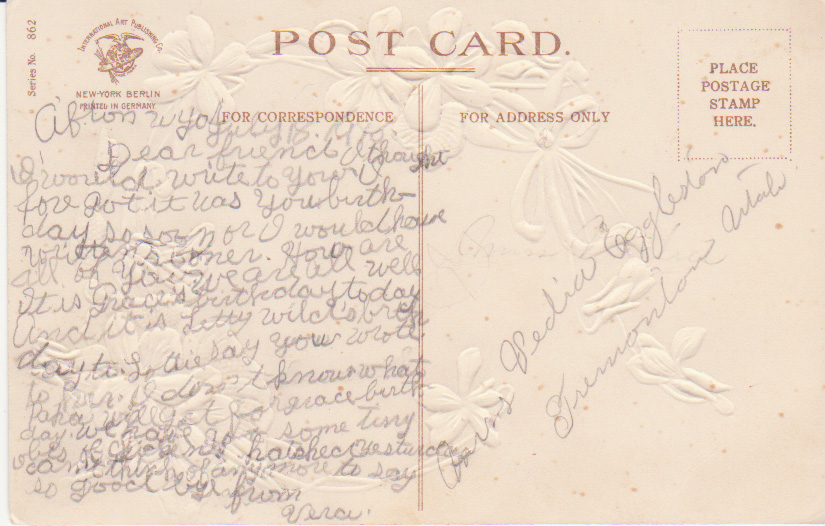 Series No. 862
INTERNATIONAL ART PUBLISHING CO.
NEW-YORK BERLIN
PRINTED IN GERMANY
POST CARD.
PLACE
POSTAGE
STAMP
HERE.
FOR CORRESPONDENCE
FOR ADDRESS ONLY
Afton Wyo July
Dear friend I thought
I would write to you I
fore got it was you birth
day so soon or I would have
written sooner. How are
all of you we are all well
It is Grace's birthday today
And it is Letty
day to Lottie say you wrote
to her. I don't know what
Papa will get for grace birth
day. we have some tiny
chickens hatched yesturday
can think of any more to say
so good bye from
Vera.
Miss Vedia Eggleston
Tremonton Utah